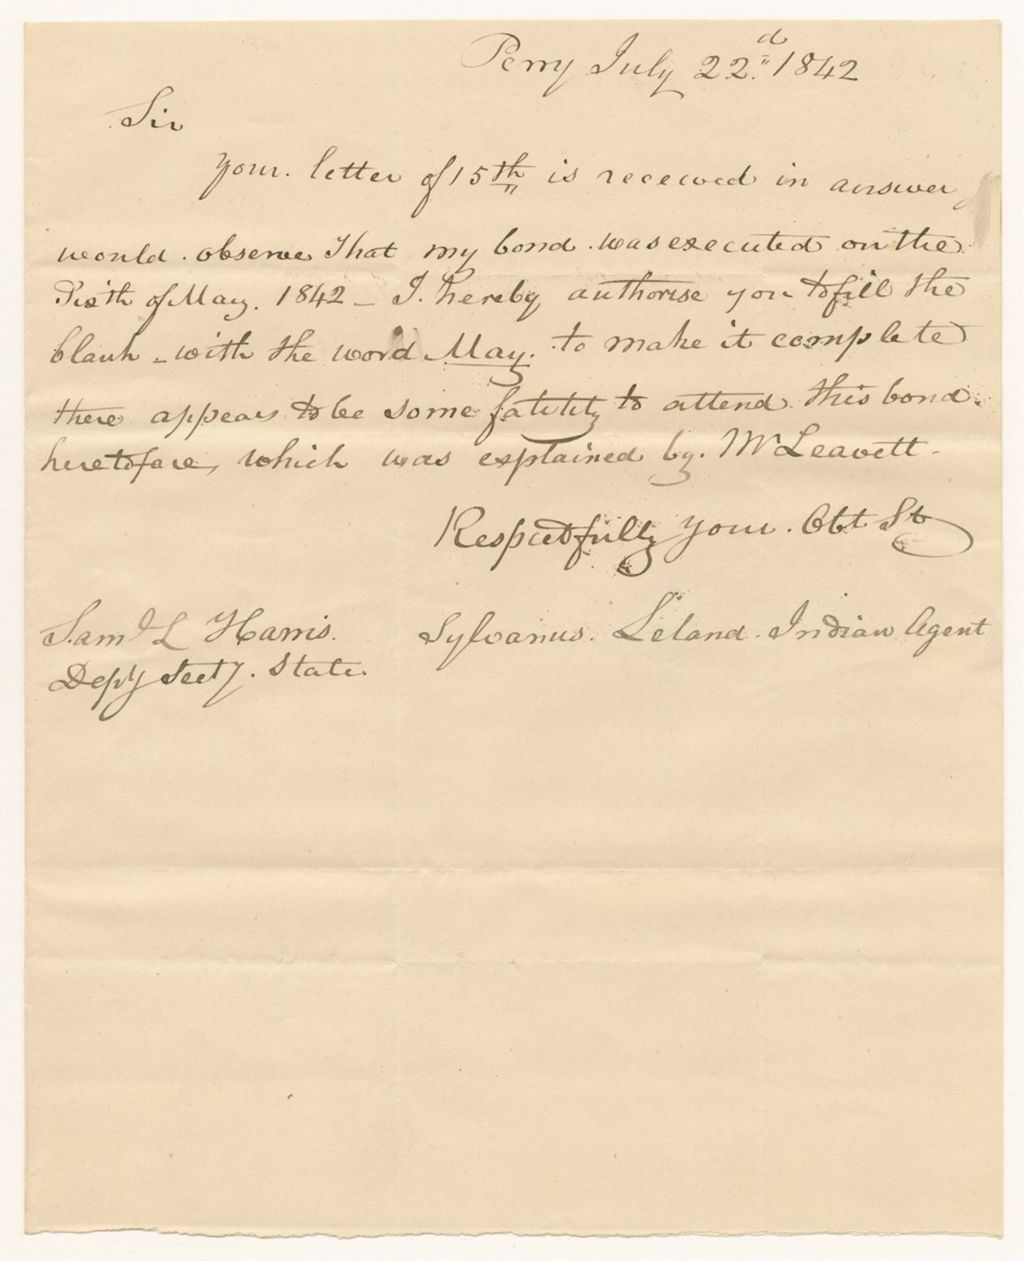 Perry July 22.d 1842
Sir
Your. letter of 15th is receeived in answer
would. observe That my bond. was executed on the
Sixth of May. 1842 - I. hereby authorise you to fill the
blank - with the word May. to make it complete
there appears to be some fatility to attend this bond.
heretofore, which was explained by. Mr Leavett.
Respectfully Your. Obt St
Saml L Harris.
Depy Secty. State.
Sylvanus. Leland. Indian Agent